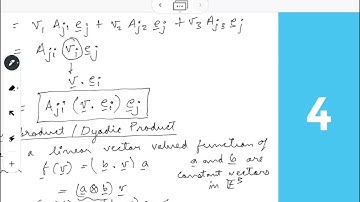 = v₁ Aⱼ₁ eⱼ + v₂ Aⱼ₂ eⱼ + v₃ Aⱼ₃ eⱼ
= Aⱼᵢ vᵢ eⱼ
v . eᵢ
= Aⱼᵢ (v . eᵢ) eⱼ
product / Dyadic Product
a linear vector valued function of
f (v) = (b . v) a
a and b are
constant vectors
in E³
= (a ⊗ b) v
4